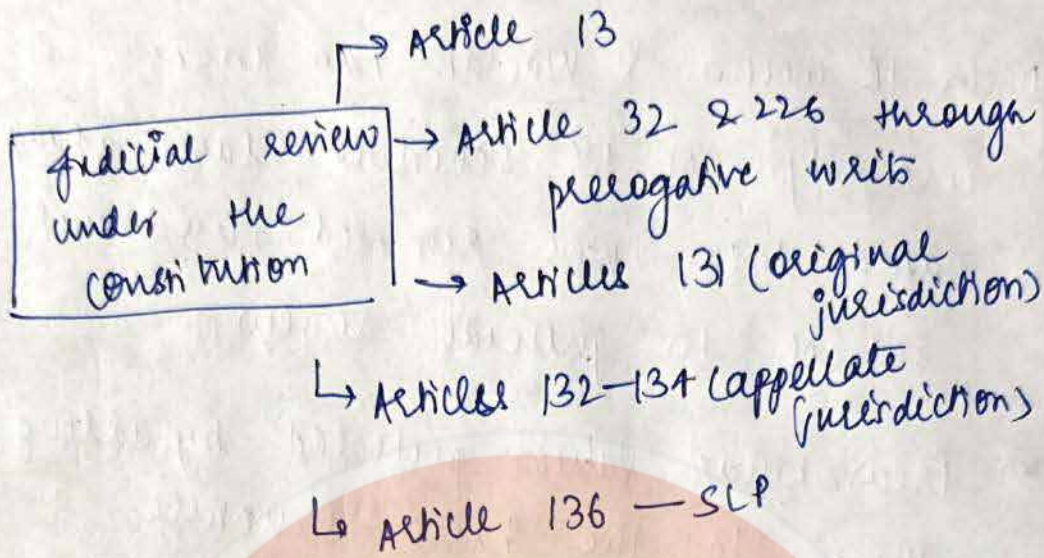 → Article 13
Judicial review
under the
constitution
→ Article 32 & 226 through
prerogative writs
→ Articles 131 (original
jurisdiction)
↳ Articles 132-134 (appellate
jurisdiction)
↳ Article 136 — SLP